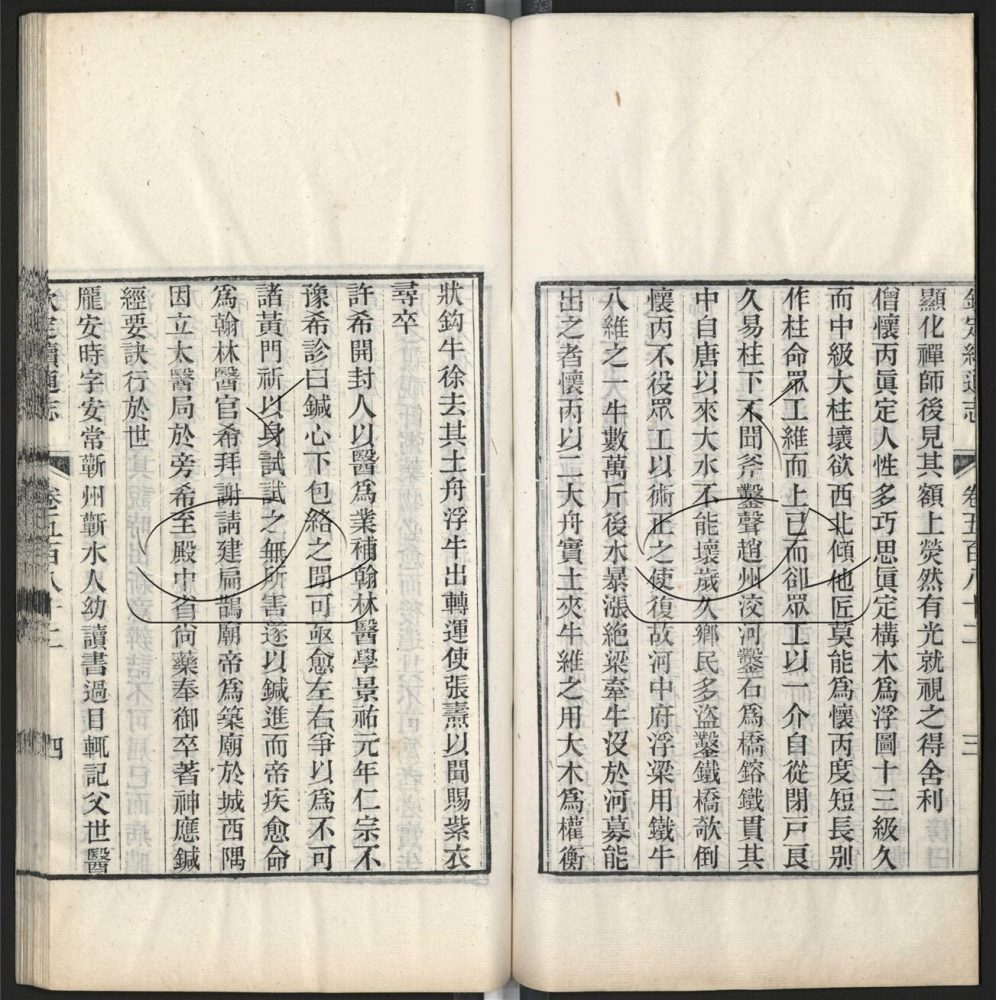 欽定續通志　卷五百八十二　三
顯化禪師後見其額上熒然有光就視之得舍利
僧懷丙眞定人性多巧思眞定構木爲浮圖十三級久
而中級大柱壞欲西北傾他匠莫能爲懷丙度短長別
作柱命眾工維而上已而卻眾工以一介自從閉戸良
久易柱下不聞斧鑿聲趙州洨河鑿石爲橋鎔鐵貫其
中自唐以來大水不能壞歲久鄉民多盜鑿鐵橋欹倒
懷丙不役眾工以術正之使復故河中府浮梁用鐵牛
八維之一牛數萬斤後水暴漲絶梁牽牛沒於河募能
出之者懷丙以二大舟實土夾牛維之用大木爲權衡
狀鈎牛徐去其土舟浮牛出轉運使張燾以聞賜紫衣
尋卒
許希開封人以醫爲業補翰林醫學景祐元年仁宗不
豫希診曰鍼心下包絡之間可亟愈左右爭以爲不可
諸黃門祈以身試試之無所害遂以鍼進而帝疾愈命
爲翰林醫官希拜謝請建扁鵲廟帝爲築廟於城西隅
因立太醫局於旁希至殿中省尙藥奉御卒著神應鍼
經要訣行於世
龐安時字安常蘄州蘄水人幼讀書過目輒記父世醫
欽定續通志　卷五百八十二　四